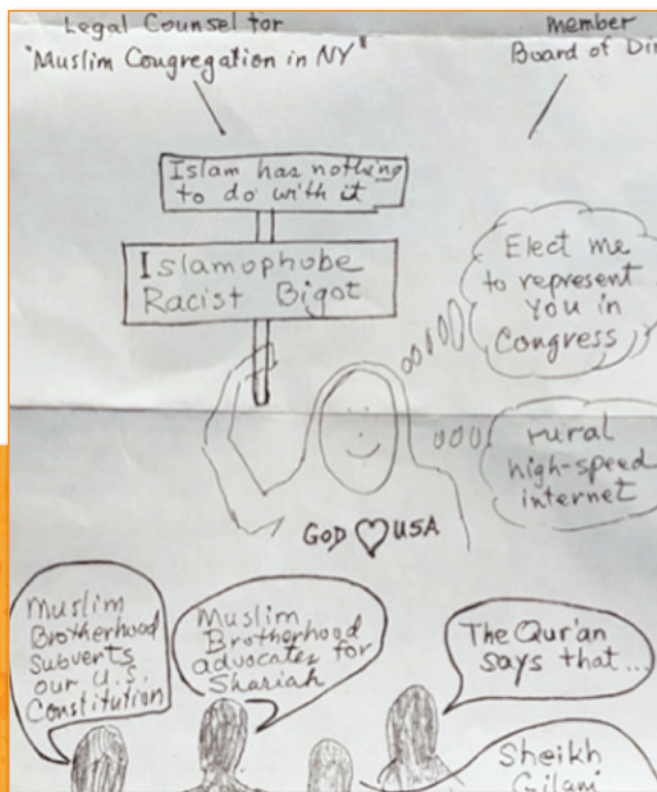 Legal Counsel for
"Muslim Congregation in NY"
member
Board of Dir
Islam has nothing
to do with it
Islamophobe
Racist Bigot
Elect me
to represent
you in
Congress
rural
high-speed
internet
GOD ♡ USA
Muslim
Brotherhood
Subverts
our U.S.
Constitution
Muslim
Brotherhood
advocates for
Shariah
The Qur'an
says that...
Sheikh
Gilani